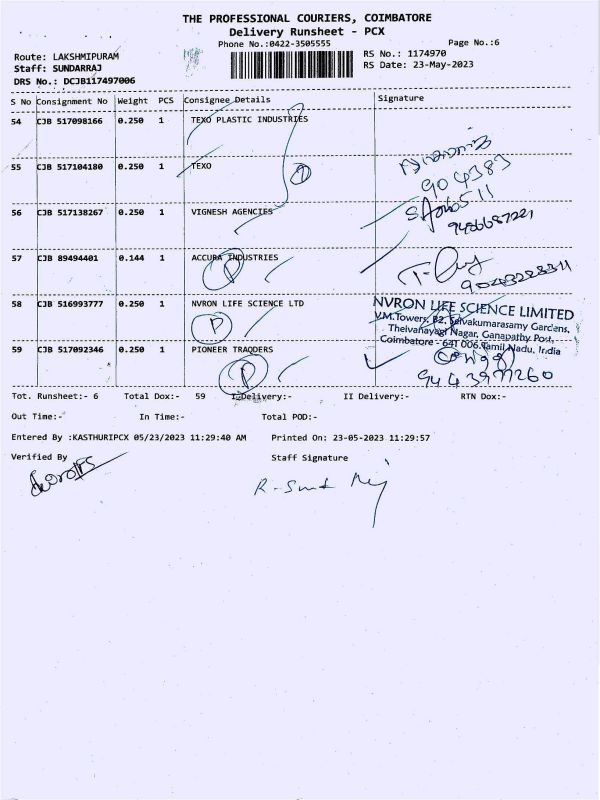 THE PROFESSIONAL COURIERS, COIMBATORE
Delivery Runsheet - PCX
Phone No.:0422-3505555
Page No.:6
Route: LAKSHMIPURAM
RS No.: 1174970
Staff: SUNDARRAJ
RS Date: 23-May-2023
DRS No.: DCJB117497006
S No Consignment No Weight PCS Consignee Details Signature
54 CJB 517098166 0.250 1 TEXO PLASTIC INDUSTRIES
55 CJB 517104180 0.250 1 TEXO
904383
56 CJB 517138267 0.250 1 VIGNESH AGENCIES
9486687221
57 CJB 89494401 0.144 1 ACCURA INDUSTRIES
P
58 CJB 516993777 0.250 1 NVRON LIFE SCIENCE LTD
P
NVRON LIFE SCIENCE LIMITED
V.M.Towers, B2, Selvakumarasamy Gardens,
Theivanayagi Nagar, Ganapathy Post,
Coimbatore - 641 006, Tamil Nadu, India
59 CJB 517092346 0.250 1 PIONEER TRAODERS
P
Tot. Runsheet:- 6 Total Dox:- 59 I Delivery:- II Delivery:- RTN Dox:-
Out Time:- In Time:- Total POD:-
Entered By :KASTHURIPCX 05/23/2023 11:29:40 AM Printed On: 23-05-2023 11:29:57
Verified By Staff Signature